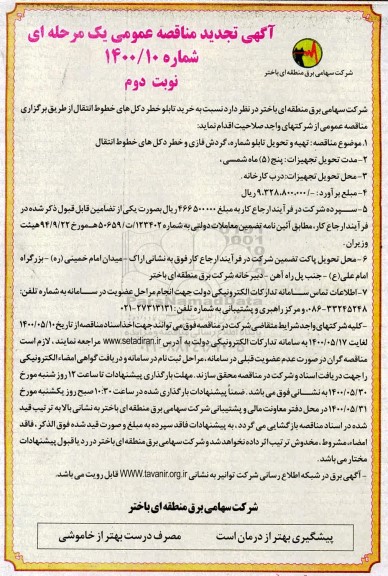 آگهی تجدید مناقصه عمومی یک مرحله ای
شماره ۱۴۰۰/۱۰
نوبت دوم
شرکت سهامی برق منطقه ای باختر
شرکت سهامی برق منطقه ای باختر در نظر دارد نسبت به خرید تابلو خطر دکل های خطوط انتقال از طریق برگزاری
مناقصه عمومی از شرکتهای واجد صلاحیت اقدام نماید:
۱. موضوع مناقصه : تهیه و تحویل تابلو شماره، گردش فازی و خطر دکل های خطوط انتقال
۲- مدت تحویل تجهیزات : پنج (۵) ماه شمسی .
۳- محل تحویل تجهیزات: درب کارخانه .
۴- مبلغ برآورد : -/۹.۳۲۸.۸۰۰.۰۰۰ ریال
۵- سپرده شرکت در فرآیند ارجاع کار به مبلغ ۴۶۶۵۰۰۰۰۰ ریال بصورت یکی از تضامین قابل قبول ذکر شده در
فرآیند ارجاع کار، مطابق آئین نامه تضمین معاملات دولتی به شماره ۱۲۳۴۰۲/ت۵۰۶۵۹هـ مورخ ۹۴/۹/۲۲ هیئت
وزیران .
۶- محل تحویل پاکت تضمین شرکت در فرآیند ارجاع کار فوق به نشانی اراک - میدان امام خمینی (ره) - بزرگراه
امام علی (ع) - جنب پل راه آهن - دبیرخانه شرکت برق منطقه ای باختر
۷- اطلاعات تماس سامانه تدارکات الکترونیکی دولت جهت انجام مراحل عضویت در سامانه به شماره تلفن:
۳۳۲۴۵۲۴۸-۰۸۶ و مرکز راهبری و پشتیبانی به شماره تلفن: ۲۷۳۱۳۱۳۱-۰۲۱
-کلیه شرکتهای واجد شرایط متقاضی شرکت در مناقصه فوق می توانند جهت اخذ اسناد مناقصه از تاریخ ۱۴۰۰/۰۵/۱۰
لغایت ۱۴۰۰/۰۵/۱۷ به سامانه تدارکات الکترونیکی دولت به آدرس www.setadiran.ir مراجعه نمایند . لازم است
مناقصه گران در صورت عدم عضویت قبلی در سامانه، مراحل ثبت نام در سامانه و دریافت گواهی امضاء الکترونیکی
را جهت دریافت اسناد و شرکت در مناقصه محقق سازند. مهلت بارگذاری پیشنهادات تا ساعت ۱۲ روز شنبه مورخ
۱۴۰۰/۰۵/۳۰ به نشانی فوق می باشد. ضمناً پیشنهادات بارگذاری شده در ساعت ۱۰:۳۰ صبح روز یکشنبه مورخ
۱۴۰۰/۰۵/۳۱ در محل دفتر معاونت مالی و پشتیبانی شرکت سهامی برق منطقه ای باختر به نشانی بالا به ترتیب قید
شده در اسناد مناقصه بازگشایی می گردد . به پیشنهادات فاقد سپرده به مبلغ و صورت قید شده فوق الذکر ، فاقد
امضاء، مشروط ، مخدوش ترتیب اثر داده نخواهد شد و شرکت سهامی برق منطقه ای باختر در رد یا قبول پیشنهادات
مختار می باشد.
- آگهی برق در شبکه اطلاع رسانی شرکت توانیر به نشانی WWW.tavanir.org.ir قابل رویت می باشد.
شرکت سهامی برق منطقه ای باختر
پیشگیری بهتر از درمان است
مصرف درست بهتر از خاموشی